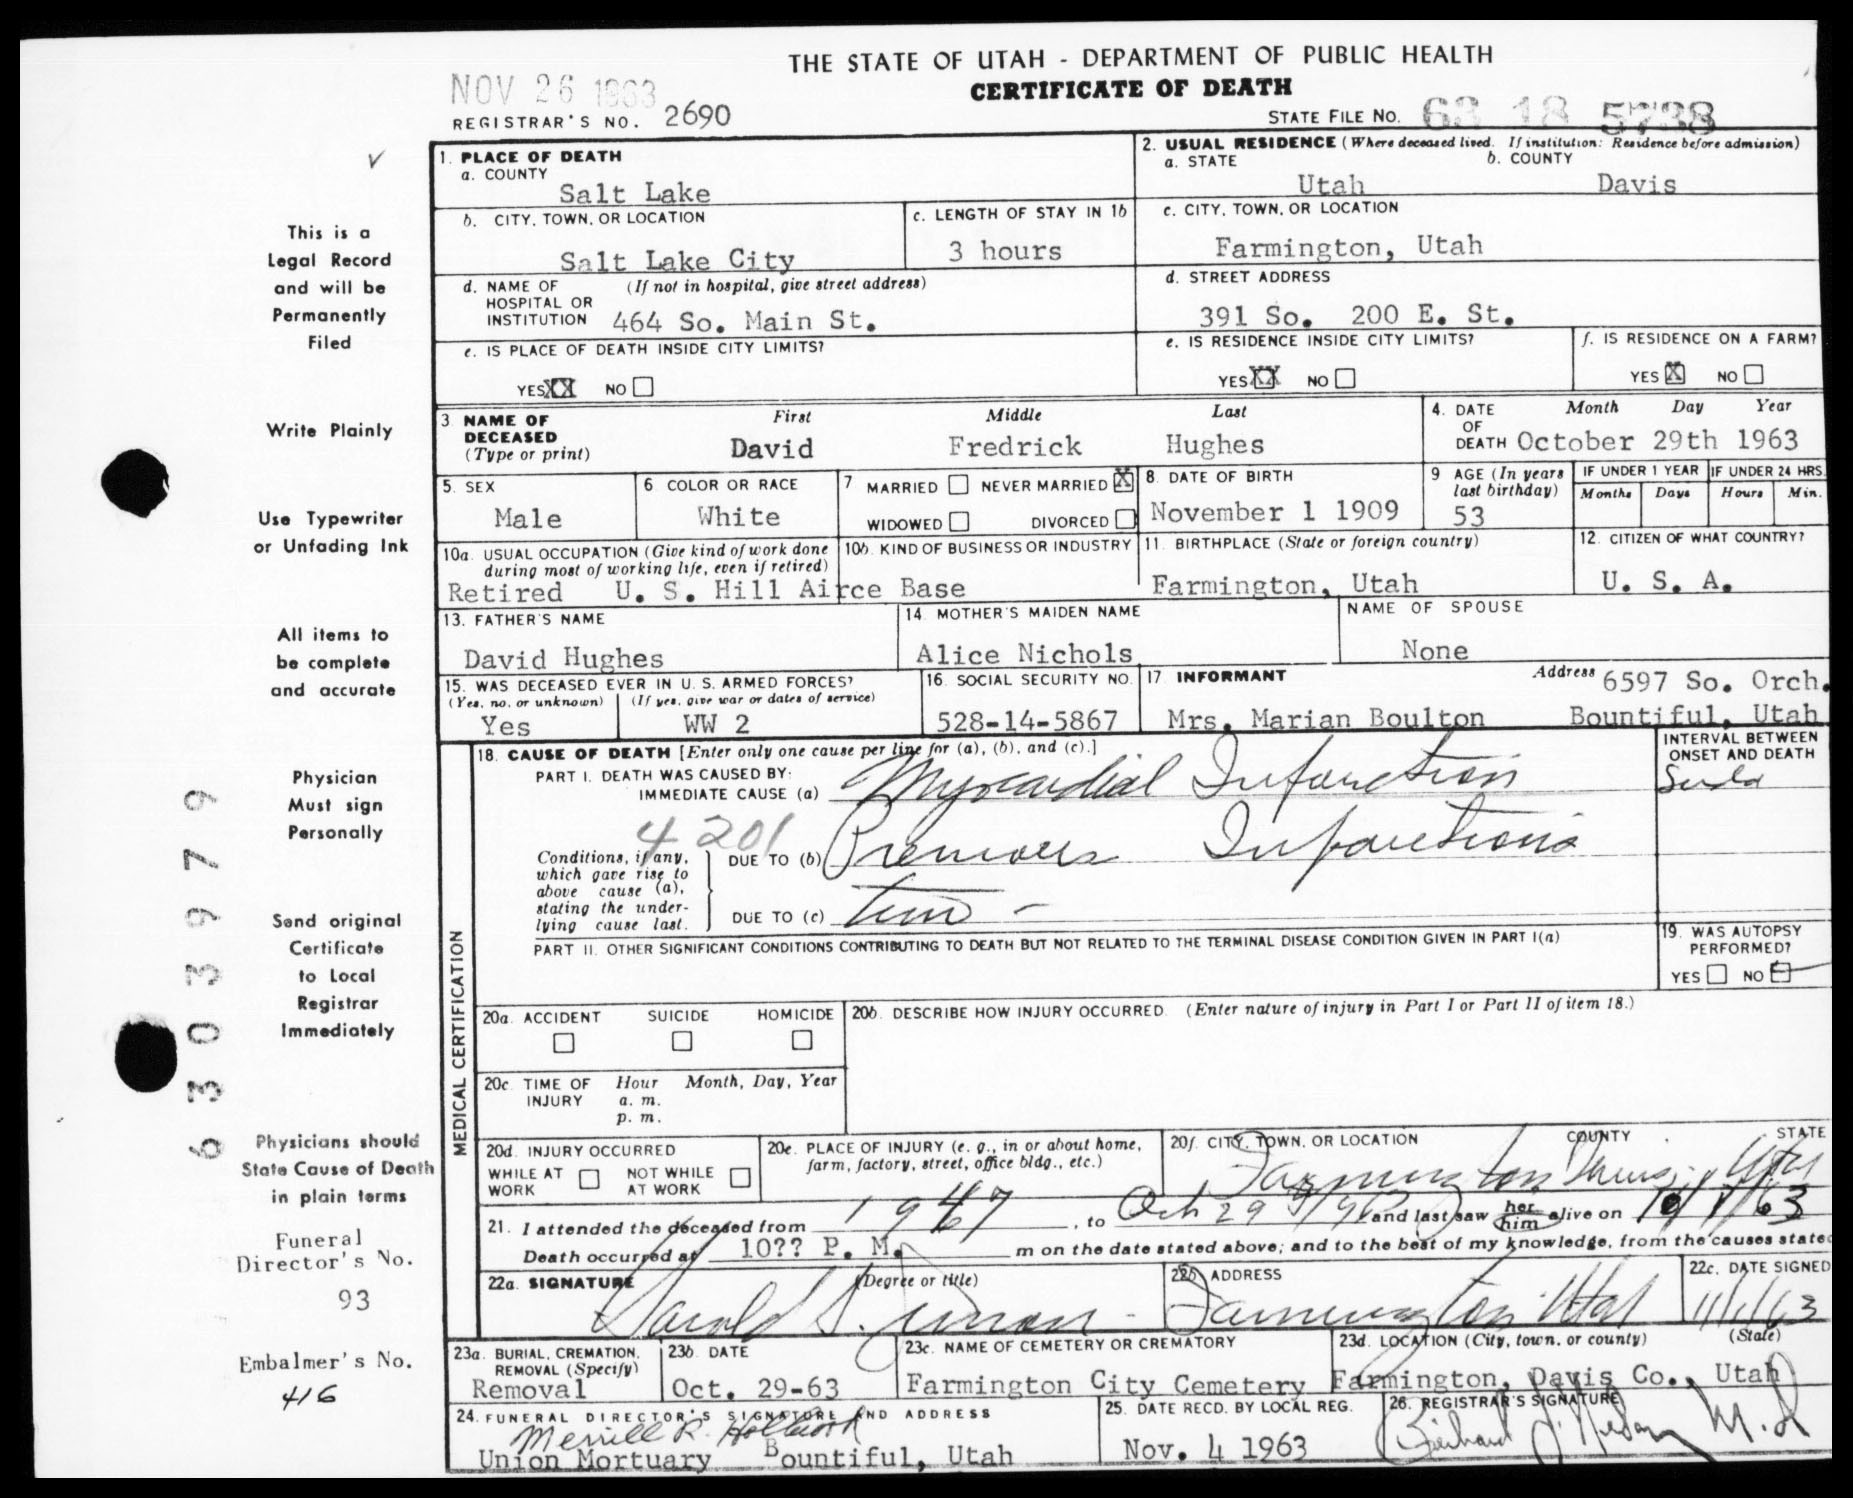 THE STATE OF UTAH - DEPARTMENT OF PUBLIC HEALTH
CERTIFICATE OF DEATH
NOV 26 1963
REGISTRAR'S NO. 2690
STATE FILE NO. 63 18 5738
This is a
Legal Record
and will be
Permanently
Filed
Write Plainly
Use Typewriter
or Unfading Ink
All items to
be complete
and accurate
Physician
Must sign
Personally
Send original
Certificate
to Local
Registrar
Immediately
Physicians should
State Cause of Death
in plain terms
Funeral
Director's No.
93
Embalmer's No.
416
6303979
1. PLACE OF DEATH
a. COUNTY
Salt Lake
b. CITY, TOWN, OR LOCATION
Salt Lake City
c. LENGTH OF STAY IN 1b
3 hours
d. NAME OF HOSPITAL OR INSTITUTION (If not in hospital, give street address)
464 So. Main St.
e. IS PLACE OF DEATH INSIDE CITY LIMITS?
YES XX NO
2. USUAL RESIDENCE (Where deceased lived. If institution: Residence before admission)
a. STATE
Utah
b. COUNTY
Davis
c. CITY, TOWN, OR LOCATION
Farmington, Utah
d. STREET ADDRESS
391 So. 200 E. St.
e. IS RESIDENCE INSIDE CITY LIMITS?
YES XX NO
f. IS RESIDENCE ON A FARM?
YES X NO
3 NAME OF DECEASED (Type or print)
First Middle Last
David Fredrick Hughes
4. DATE OF DEATH
Month Day Year
October 29th 1963
5. SEX
Male
6. COLOR OR RACE
White
7 MARRIED NEVER MARRIED X
WIDOWED DIVORCED
8. DATE OF BIRTH
November 1 1909
9 AGE (In years last birthday)
53
IF UNDER 1 YEAR
Months Days
IF UNDER 24 HRS.
Hours Min.
10a. USUAL OCCUPATION (Give kind of work done during most of working life, even if retired)
10b. KIND OF BUSINESS OR INDUSTRY
Retired U. S. Hill Airce Base
11. BIRTHPLACE (State or foreign country)
Farmington, Utah
12. CITIZEN OF WHAT COUNTRY?
U. S. A.
13. FATHER'S NAME
David Hughes
14. MOTHER'S MAIDEN NAME
Alice Nichols
NAME OF SPOUSE
None
15. WAS DECEASED EVER IN U. S. ARMED FORCES?
(Yes, no, or unknown) (If yes, give war or dates of service)
Yes WW 2
16. SOCIAL SECURITY NO.
528-14-5867
17. INFORMANT
Mrs. Marian Boulton
Address 6597 So. Orch.
Bountiful, Utah
18. CAUSE OF DEATH [Enter only one cause per line for (a), (b), and (c).]
PART I. DEATH WAS CAUSED BY:
IMMEDIATE CAUSE (a) Myocardial Infarction
INTERVAL BETWEEN ONSET AND DEATH
4201
Conditions, if any, which gave rise to above cause (a), stating the underlying cause last.
DUE TO (b) Previous Infarctions
DUE TO (c)
PART II. OTHER SIGNIFICANT CONDITIONS CONTRIBUTING TO DEATH BUT NOT RELATED TO THE TERMINAL DISEASE CONDITION GIVEN IN PART I(a)
19. WAS AUTOPSY PERFORMED?
YES NO
MEDICAL CERTIFICATION
20a. ACCIDENT SUICIDE HOMICIDE
20b. DESCRIBE HOW INJURY OCCURRED. (Enter nature of injury in Part I or Part II of item 18.)
20c. TIME OF INJURY Hour Month, Day, Year
a. m.
p. m.
20d. INJURY OCCURRED
WHILE AT WORK NOT WHILE AT WORK
20e. PLACE OF INJURY (e. g., in or about home, farm, factory, street, office bldg., etc.)
20f. CITY, TOWN, OR LOCATION COUNTY STATE
Farmington Utah
21. I attended the deceased from 1947, to Oct 29 1963 and last saw her him alive on 10/1/63
Death occurred at 10?? P. M. m on the date stated above; and to the best of my knowledge, from the causes stated
22a. SIGNATURE (Degree or title)
Harold
22b. ADDRESS
Farmington Utah
22c. DATE SIGNED
11/1/63
23a. BURIAL, CREMATION, REMOVAL (Specify)
Removal
23b. DATE
Oct. 29-63
23c. NAME OF CEMETERY OR CREMATORY
Farmington City Cemetery
23d. LOCATION (City, town, or county) (State)
Farmington, Davis Co., Utah
24. FUNERAL DIRECTOR'S SIGNATURE AND ADDRESS
Merrill R. Holbrook
Union Mortuary Bountiful, Utah
25. DATE RECD. BY LOCAL REG.
Nov. 4 1963
26. REGISTRAR'S SIGNATURE
M.D